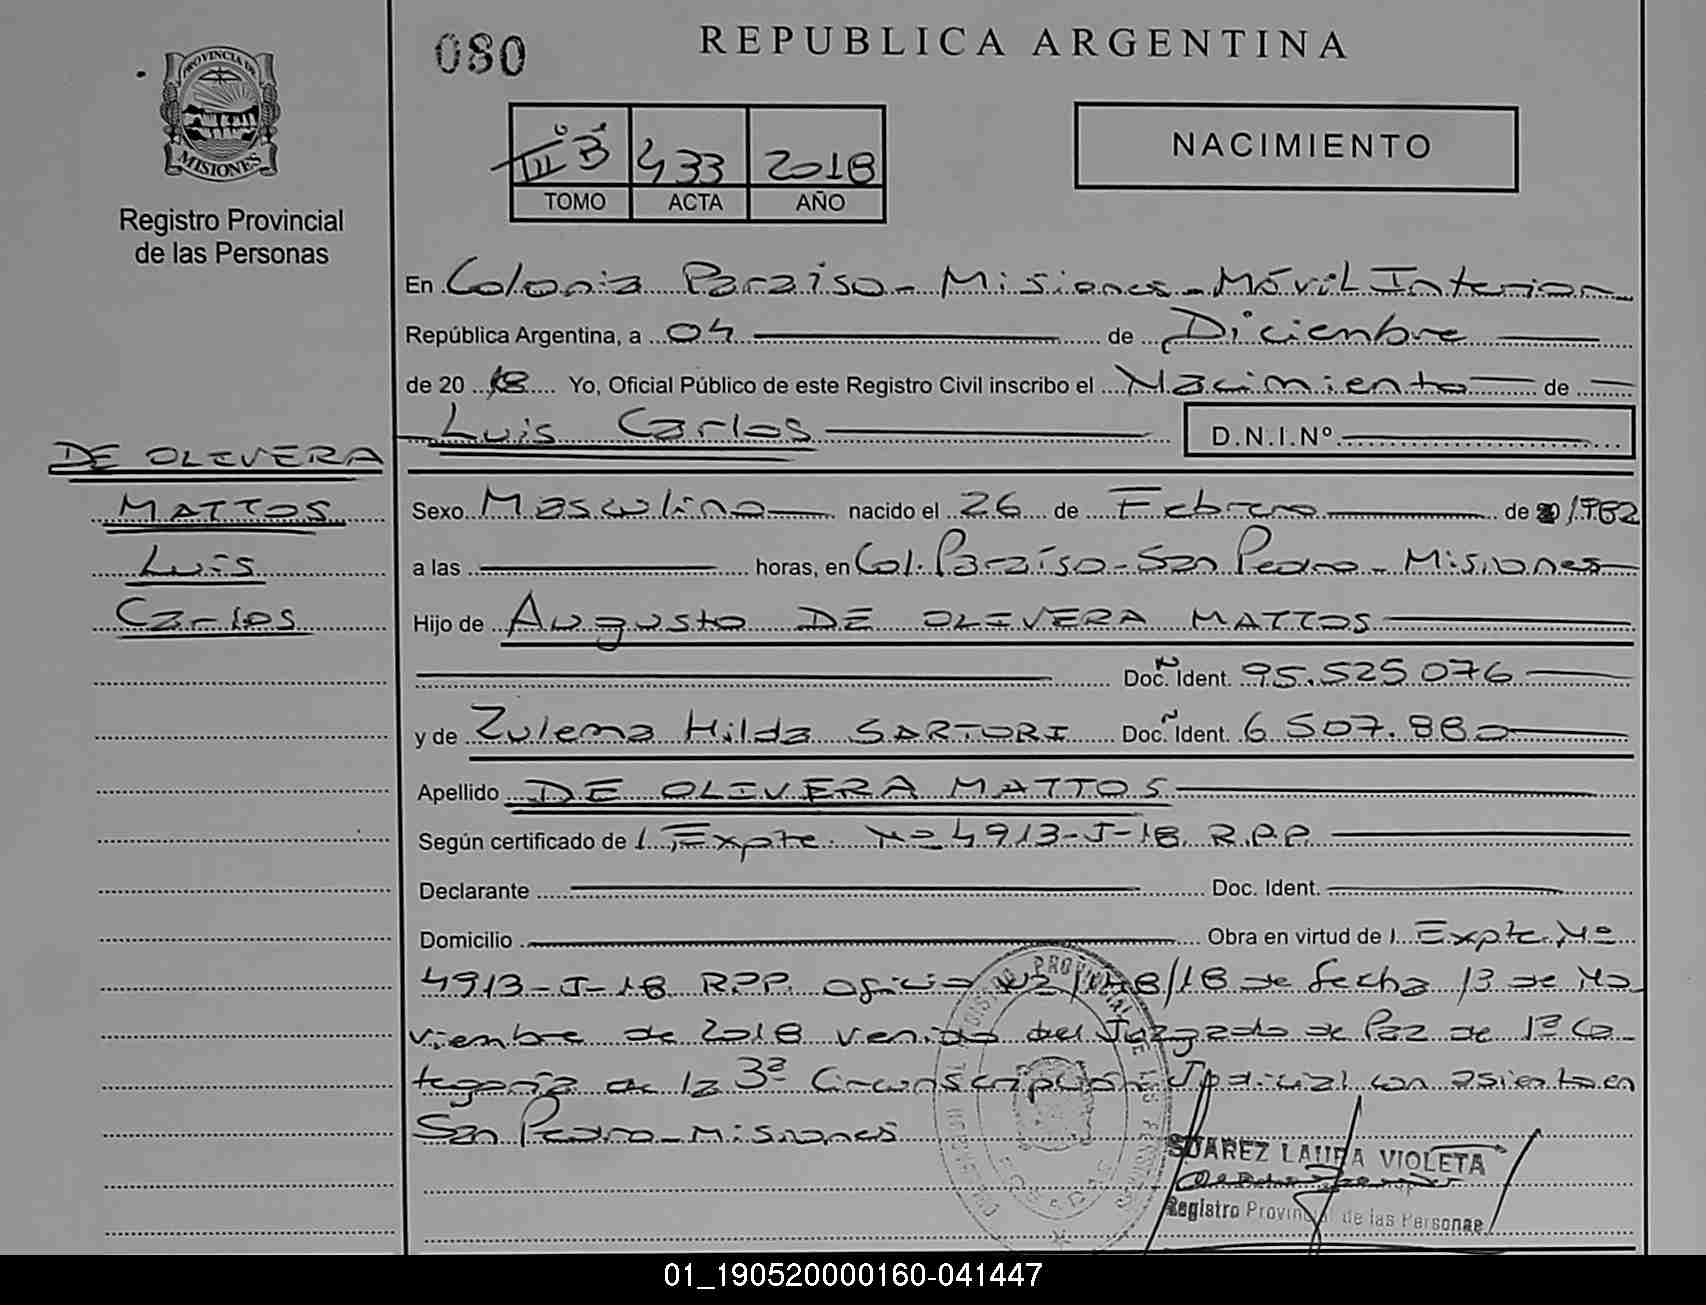 080
REPUBLICA ARGENTINA
PROVINCIA DE
MISIONES
Registro Provincial
de las Personas
IIIº B 433 2018
TOMO ACTA AÑO
NACIMIENTO
En Colonia Paraiso - Misiones - Móvil Interior
República Argentina, a 04 de Diciembre
de 2018 Yo, Oficial Público de este Registro Civil inscribo el Nacimiento de
Luis Carlos D.N.I.Nº
DE OLIVERA
MATTOS
Luis
Carlos
Sexo Masculino nacido el 26 de Febrero de 1982
a las horas, en Col. Paraíso - San Pedro - Misiones
Hijo de Augusto DE OLIVERA MATTOS
Doc. Ident. 95.525.076
y de Zulema Hilda SARTORI Doc. Ident. 6.507.880
Apellido DE OLIVERA MATTOS
Según certificado de Expte. Nº 4913-J-18 R.P.P.
Declarante Doc. Ident.
Domicilio Obra en virtud de Expte. Nº
4913-J-18 R.P.P. oficio Nº /18 de fecha 13 de No
viembre de 2018 venido del Juzgado de Paz de 1ª Ca
tegoría de la 3ª Circunscripción Judicial con asiento en
San Pedro - Misiones
SUAREZ LAURA VIOLETA
Registro Provincial de las Personas
01_190520000160-041447